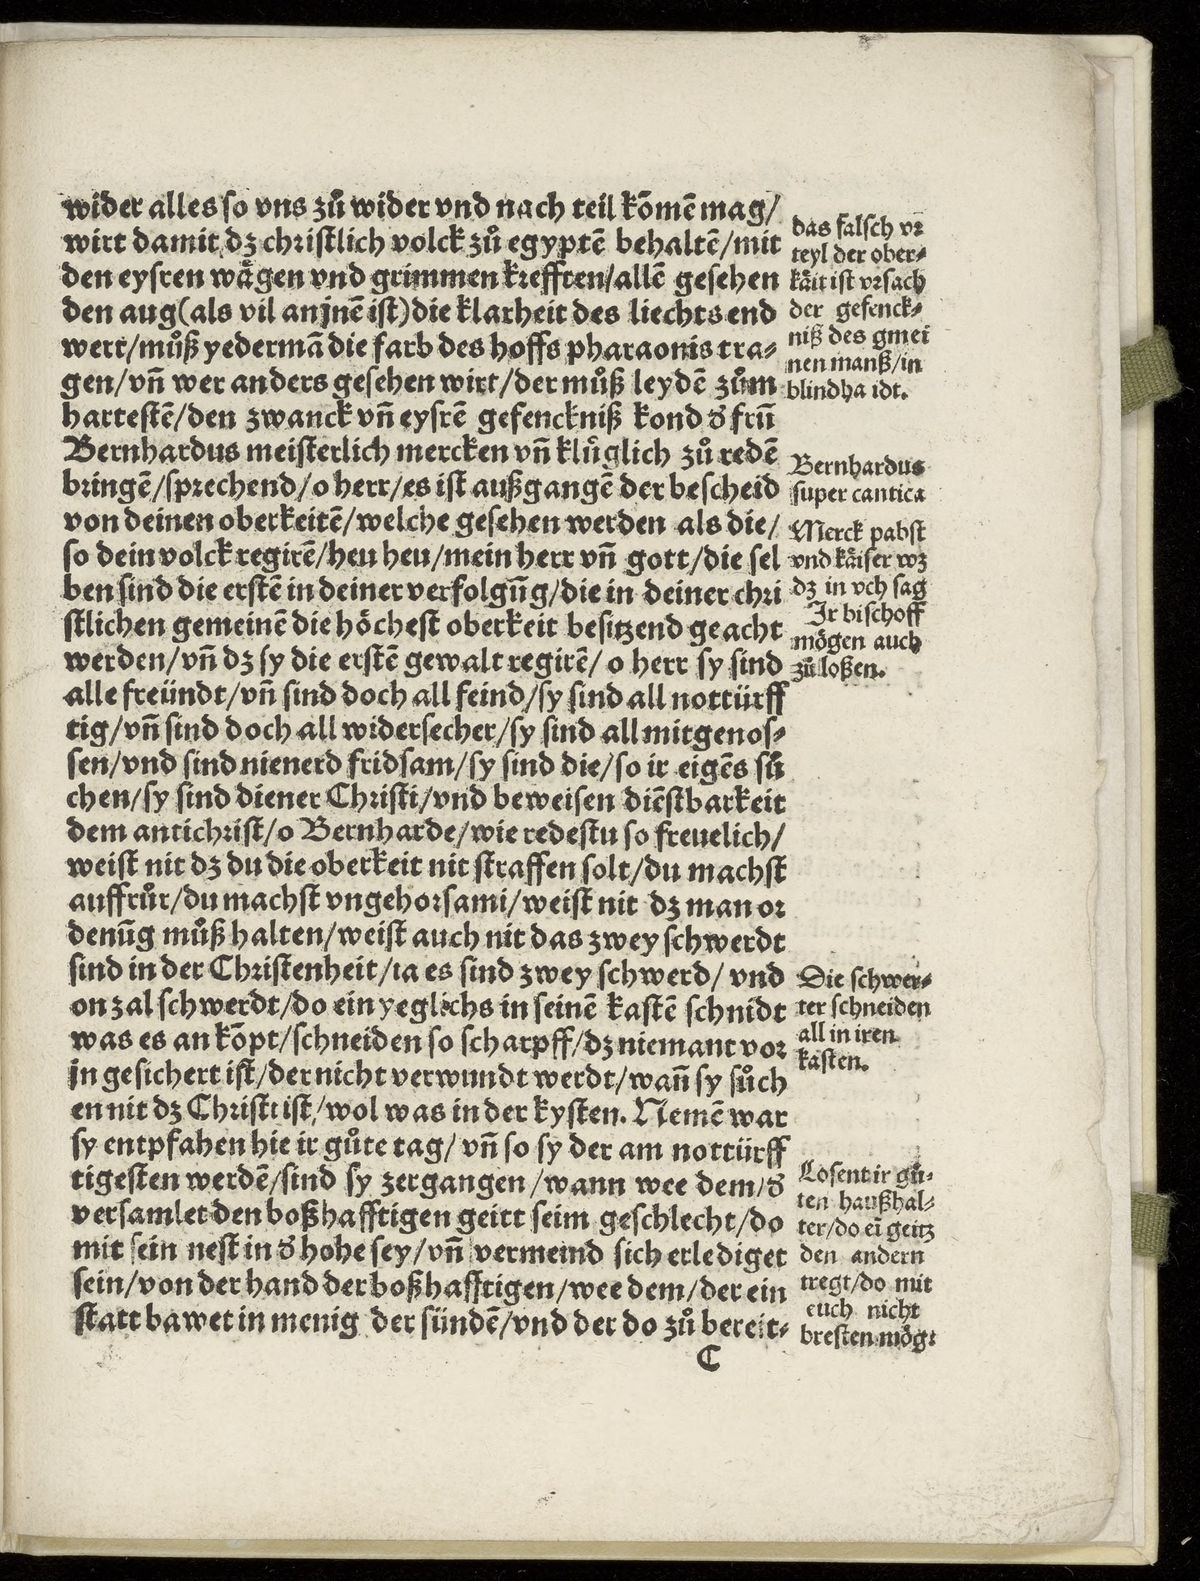 wider alles so vns zů wider vnd nach teil kõmẽ mag/
wirt damit dz christlich volck zů egyptẽ behaltẽ/mit
den eysren wägen vnd grimmen krefften/allẽ gesehen
den aug(als vil an jnẽ ist)die klarheit des liechts end
wert/můß yedermã die farb des hoffs pharaonis tra⸗
gen/vñ wer anders gesehen wirt/der můß leydẽ zům
hartestẽ/den zwanck vñ eysrẽ gefenckniß kond d' frñ
Bernhardus meisterlich mercken vñ klüglich zů redẽ
bringẽ/sprechend/o herr/es ist außgangẽ der bescheid
von deinen oberkeitẽ/welche gesehen werden als die/
so dein volck regirẽ/heu heu/mein herr vñ gott/die sel
ben sind die erstẽ in deiner verfolgũg/die in deiner chri
stlichen gemeinẽ die höchest oberkeit besitzend geacht
werden/vñ dz sy die erstẽ gewalt regirẽ/o herr sy sind
alle freündt/vñ sind doch all feind/sy sind all nottürff
tig/vñ sind doch all widersecher/sy sind all mitgenos⸗
sen/vnd sind nienerd fridsam/sy sind die/so ir eigẽs sů
chen/sy sind diener Christi/vnd beweisen diẽstbarkeit
dem antichrist/o Bernharde/wie redestu so freuelich/
weist nit dz du die oberkeit nit straffen solt/du machst
auffrůr/du machst vngehorsami/weist nit dz man or
denũg můß halten/weist auch nit das zwey schwerdt
sind in der Christenheit/ia es sind zwey schwerd/ vnd
on zal schwerdt/do ein yeglichs in seinẽ kastẽ schnidt
was es an kõpt/schneiden so scharpff/dz niemant vor
jn gesichert ist/der nicht verwundt werdt/wañ sy sůch
en nit dz Christi ist/wol was in der kysten. Nemẽ war
sy entpfahen hie ir gůte tag/vñ so sy der am nottürff
tigesten werdẽ/sind sy zergangen/wann wee dem/d'
versamlet den boßhafftigen geitt seim geschlecht/do
mit sein nest in d' hohe sey/vñ vermeind sich erlediget
sein/von der hand der boßhafftigen/wee dem/der ein
statt bawet in menig der sündẽ/vnd der do zů bereit⸗
C
das falsch vr
teyl der ober⸗
käit ist vrsach
der gefenck⸗
niß des gmei
nen manß/in
blindha idt.
Bernhardus
super cantica
Merck pabst
vnd käiser wz
dz in vch sag
Jr bischoff
mögen auch
zů loßen.
Die schwer⸗
ter schneiden
all in iren
kästen.
Losent ir gů⸗
ten haußhal⸗
ter/do eĩ geitz
den andern
tregt/do mit
euch nicht
bresten mög⸗